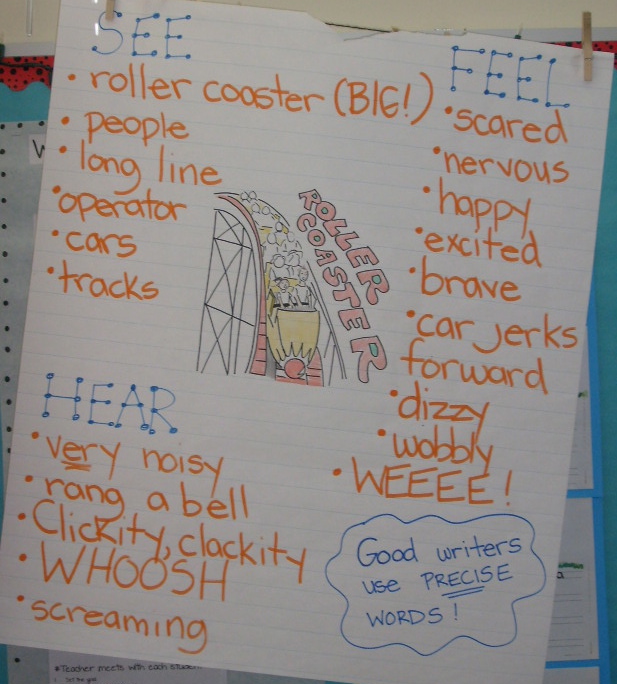 SEE
• roller coaster (BIG!)
• people
• long line
• operator
• cars
• tracks
ROLLER
COASTER
FEEL
• scared
• nervous
• happy
• excited
• brave
• car jerks
forward
• dizzy
• wobbly
• WEEEE!
HEAR
• very noisy
• rang a bell
• Clickity, clackity
• WHOOSH
• screaming
Good writers
use PRECISE
WORDS!
W
*Teacher meets with each student